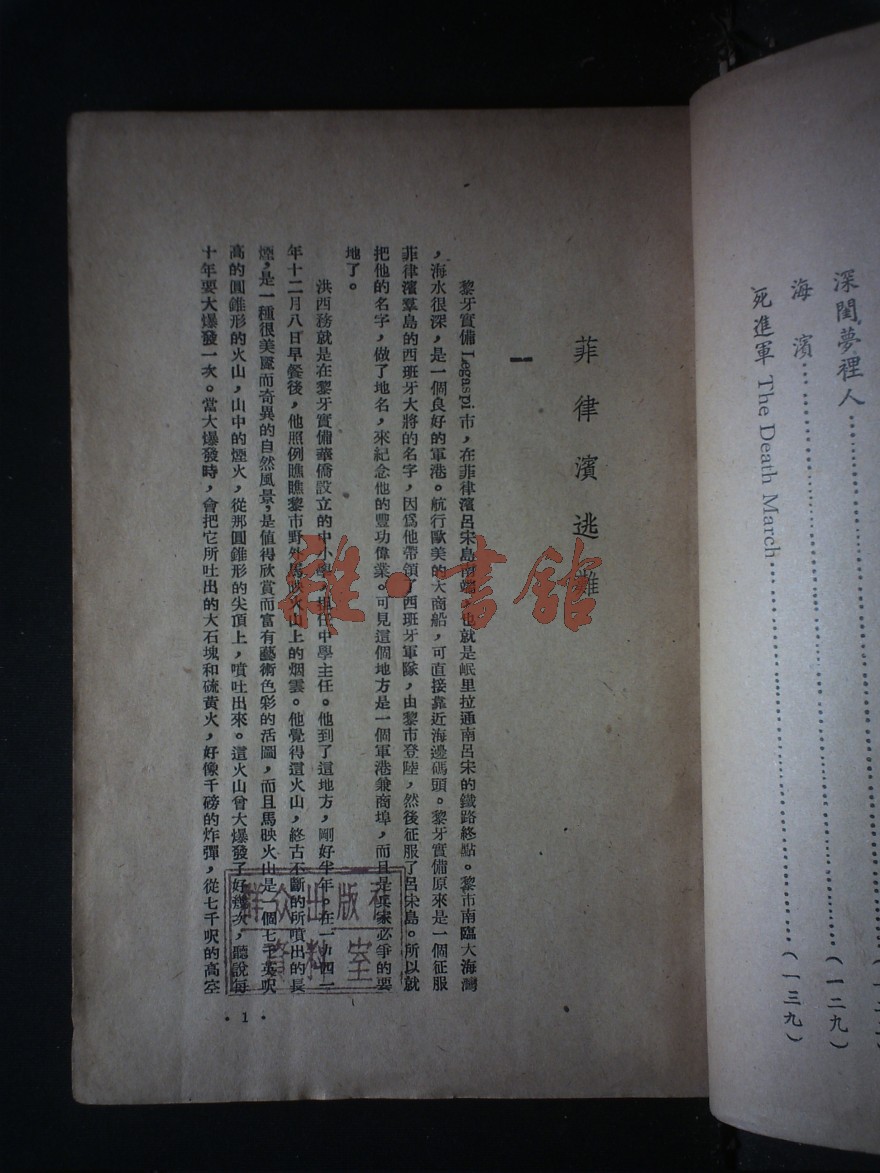 深閨夢裡人
海濱(一二九)
死進軍 The Death March(一三九)
菲律濱逃難
一
黎牙實備 Legaspi 市，在菲律濱呂宋島南端，也就是岷里拉通南呂宋的鐵路終點。黎市南臨大海灣
，海水很深，是一個良好的軍港。航行歐美的大商船，可直接靠近海邊碼頭。黎牙實備原來是一個征服
菲律濱羣島的西班牙大將的名字，因爲他帶領了西班牙軍隊，由黎市登陸，然後征服了呂宋島。所以就
把他的名字，做了地名，來紀念他的豐功偉業。可見這個地方是一個軍港兼商埠，而且是兵家必爭的要
地了。
洪西務就是在黎牙實備華僑設立的中小學，担任中學主任。他到了這地方，剛好半年。在一九四一
年十二月八日早餐後，他照例瞧瞧黎市野外馬映火山上的烟雲。他覺得這火山，終古不斷的所噴出的長
煙，是一種很美麗而奇異的自然風景，是值得欣賞而富有藝術色彩的活圖，而且馬映火山是一個七千英呎
高的圓錐形的火山，山中的煙火，從那圓錐形的尖頂上，噴吐出來。這火山曾大爆發了好幾次，聽說每
十年要大爆發一次。當大爆發時，會把它所吐出的大石塊和硫黄火，好像千磅的炸彈，從七千呎的高空
·1·
群众出版社
資料室
雜·書館